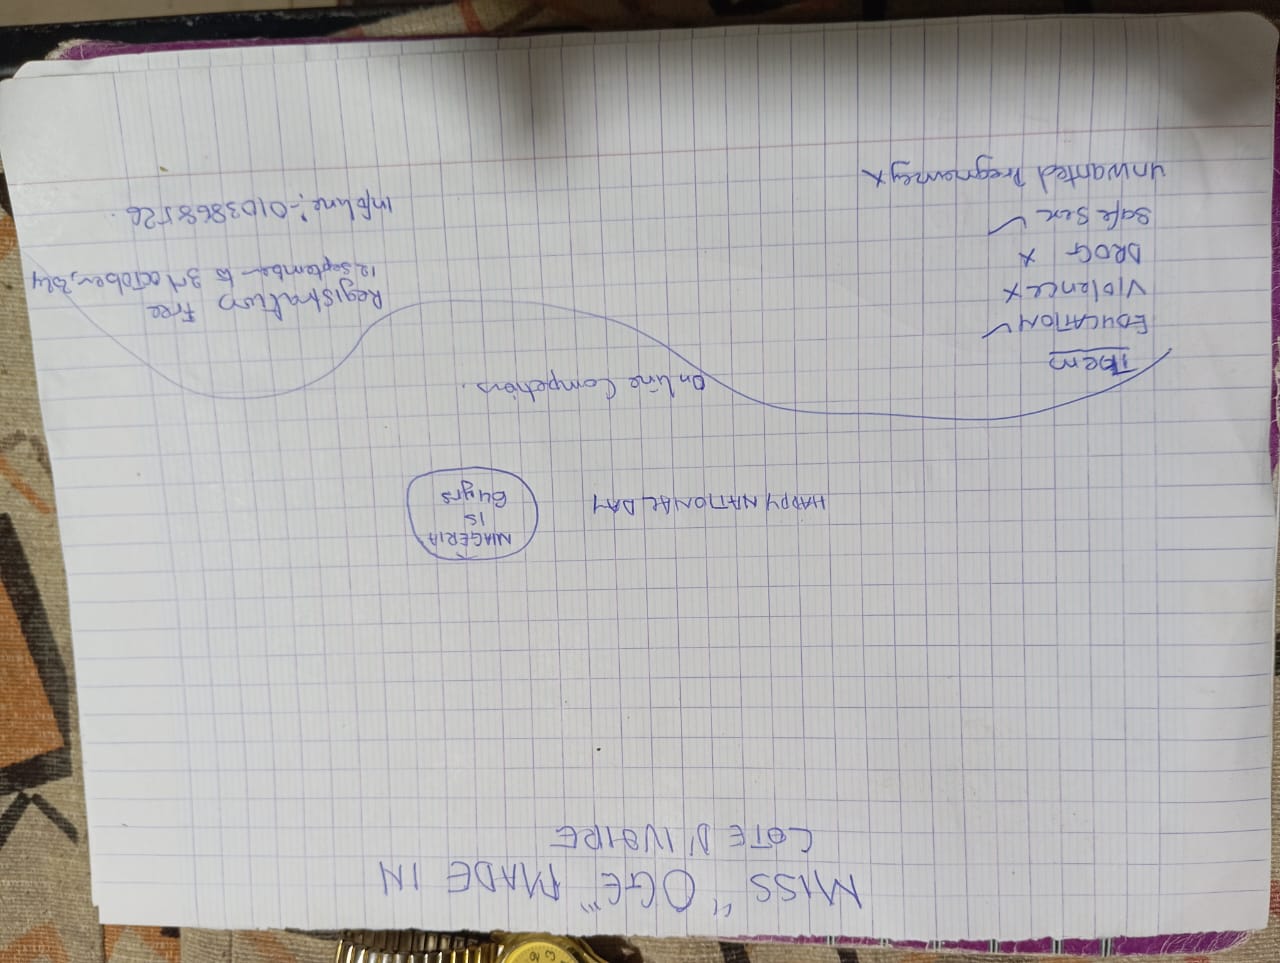 MISS "OGE" MADE IN
COTE D'IVOIRE
HAPPY NATIONAL DAY
NIAGERIA
IS
64yrs
Online Competions.
Them
EDUCATION ✓
Violence x
DROG x
Safe Sex ✓
unwanted Pregnancy x
Registration Free
12 September to 3rd OCTOBER, 2024
Infoline:-0103868526.